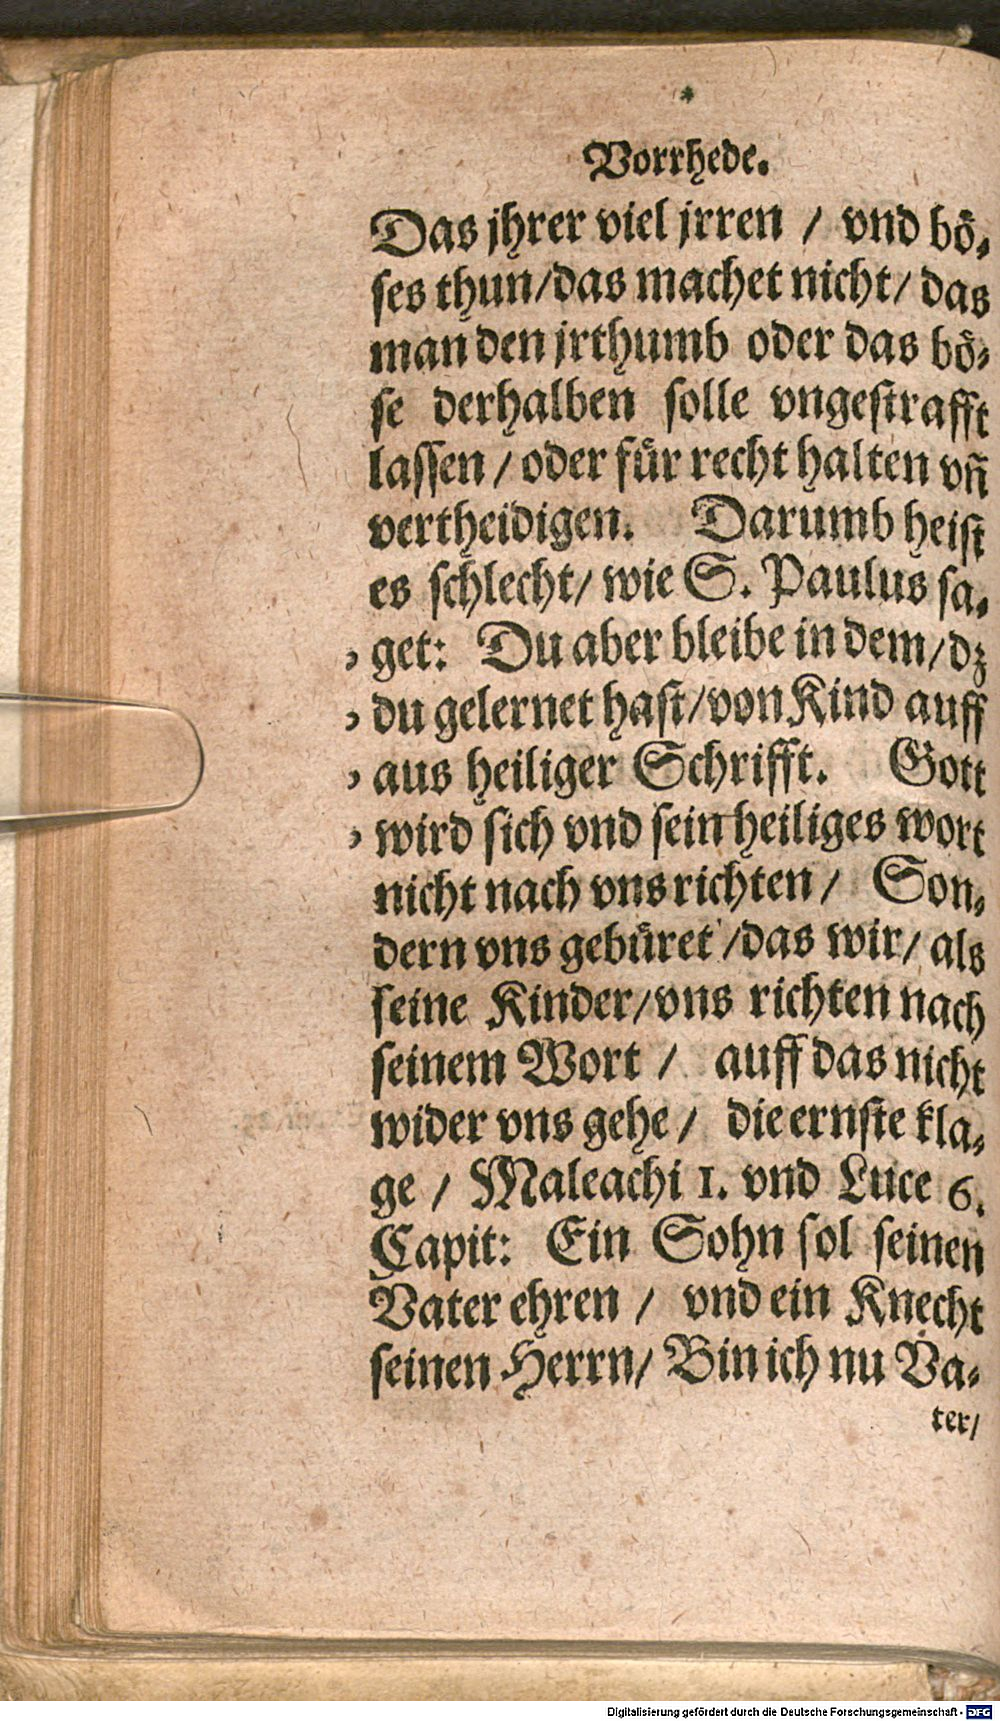 Vorrhede.
Das jhrer viel jrren / vnd bö-
ses thun/das machet nicht/ das
man den jrthumb oder das bö-
se derhalben solle vngestrafft
lassen / oder für recht halten vñ
vertheidigen. Darumb heist
es schlecht/ wie S. Paulus sa-
get: Du aber bleibe in dem/dz
du gelernet hast/von Kind auff
aus heiliger Schrifft. Gott
wird sich vnd sein heiliges wort
nicht nach vns richten / Son-
dern vns gebüret /das wir/ als
seine Kinder/vns richten nach
seinem Wort / auff das nicht
wider vns gehe / die ernste kla-
ge / Maleachi 1. vnd Luce 6.
Capit: Ein Sohn sol seinen
Vater ehren / vnd ein Knecht
seinen Herrn/ Bin ich nu Va-
ter/
Digitalisierung gefördert durch die Deutsche Forschungsgemeinschaft - DFG